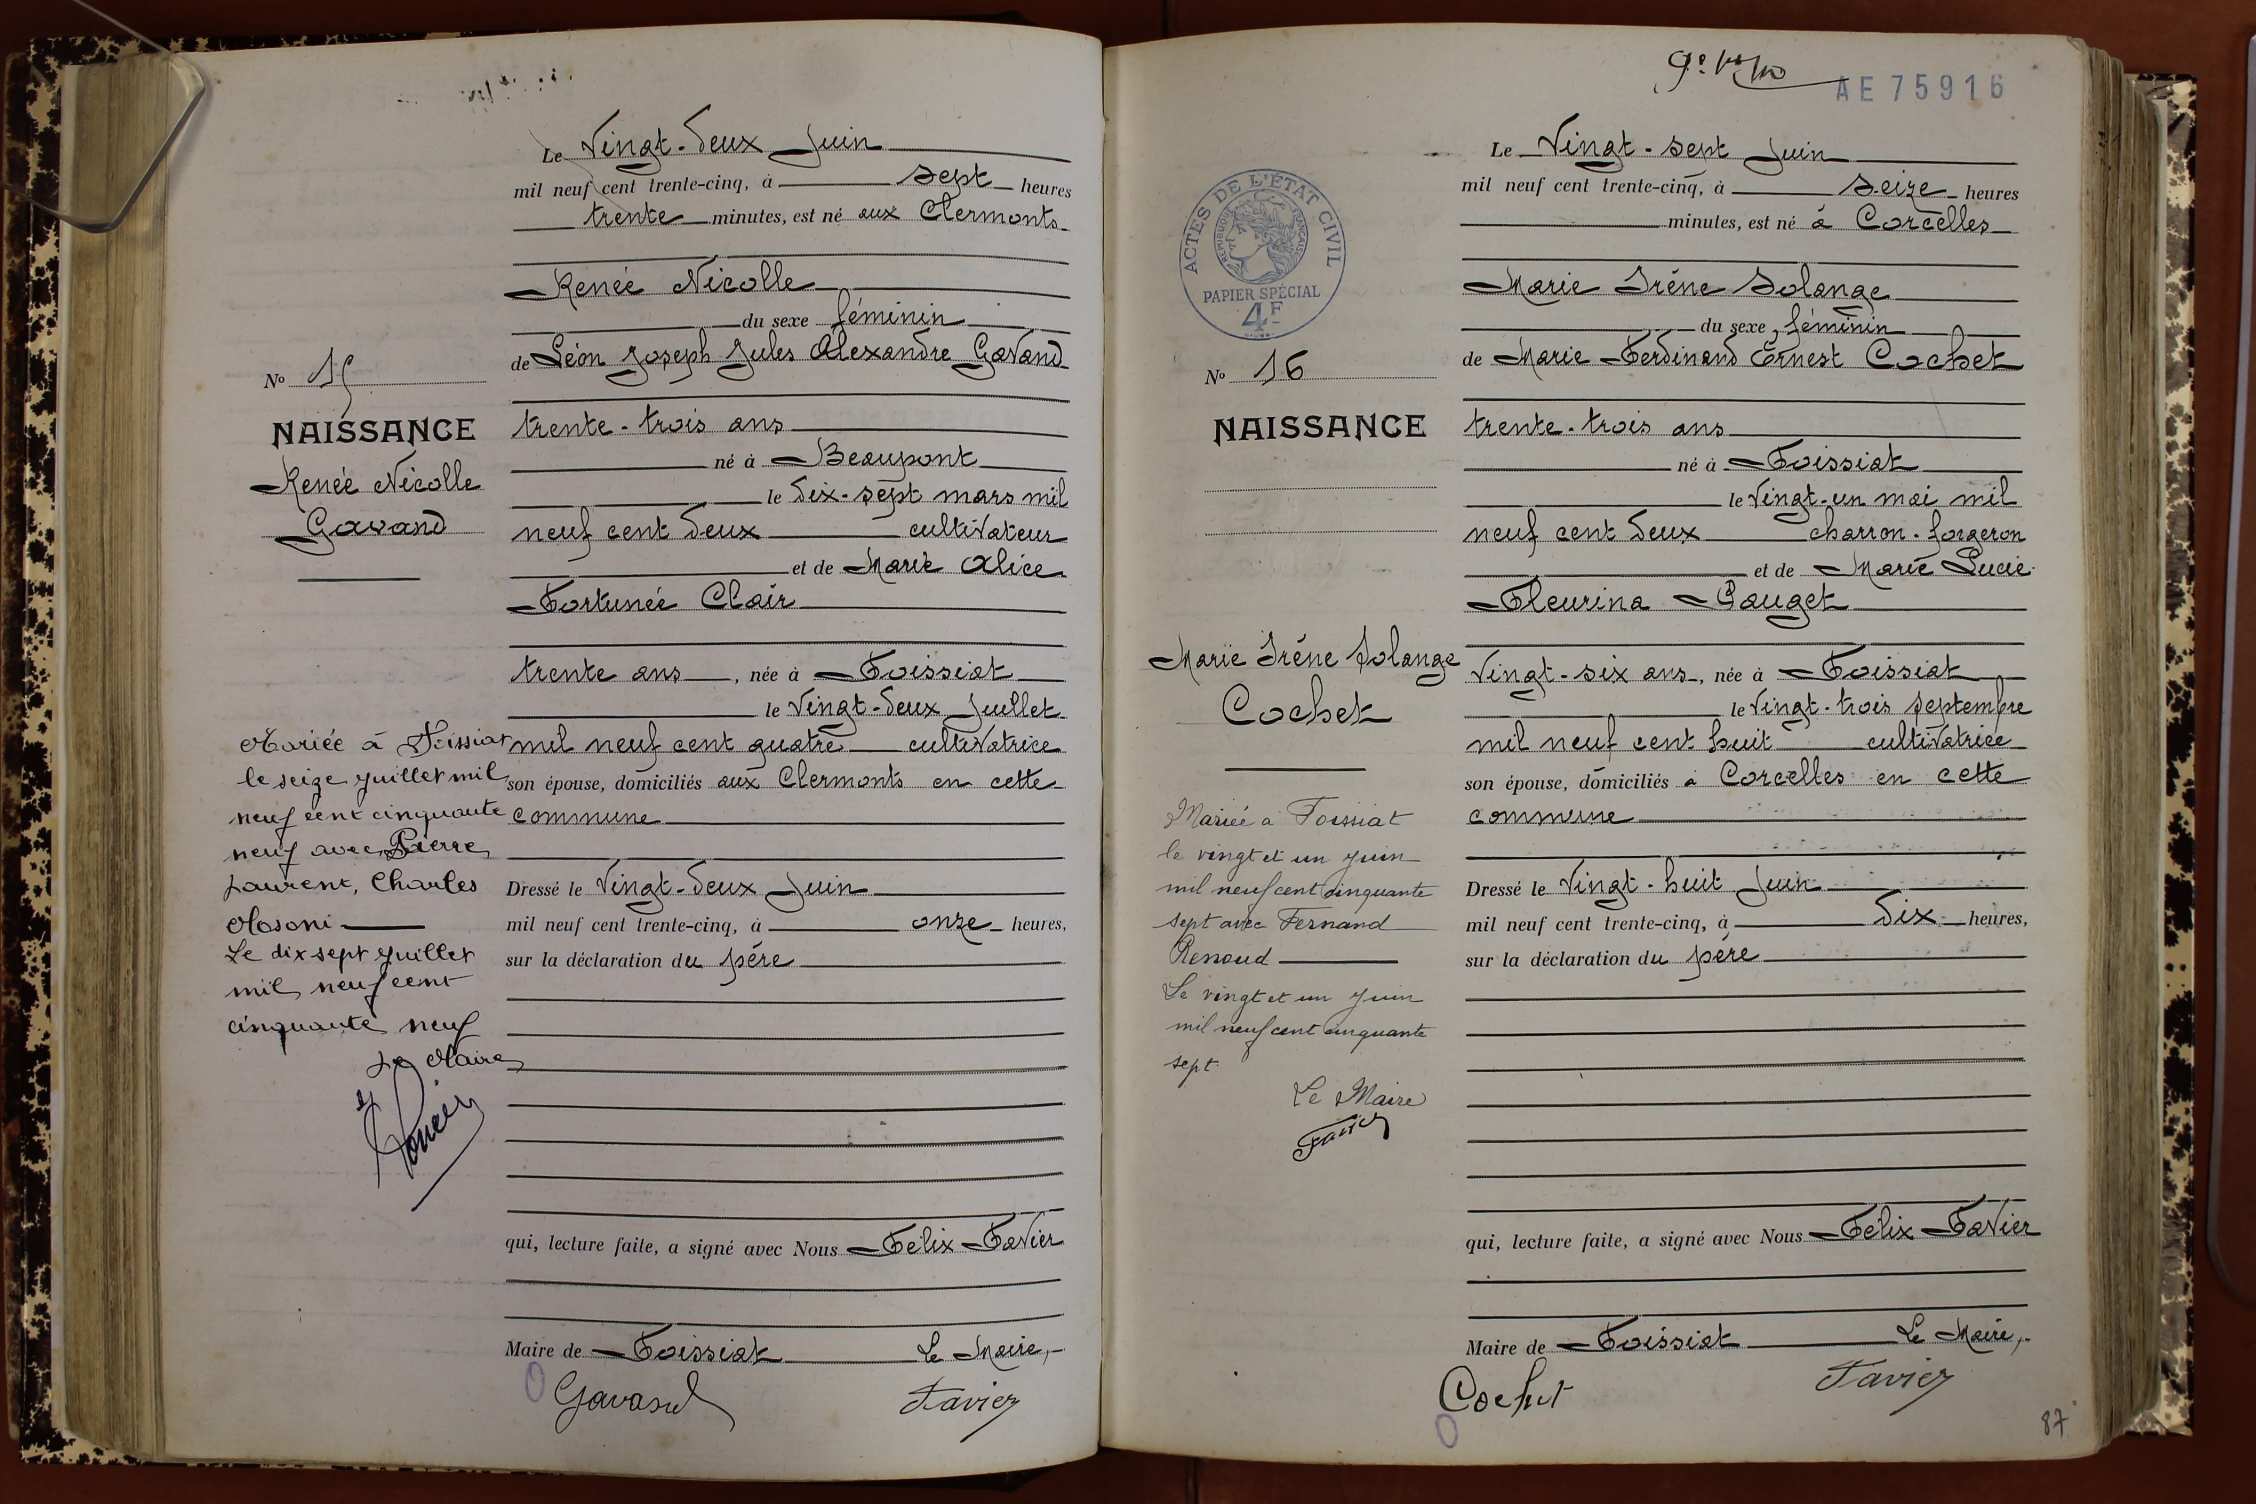 Le Vingt-deux Juin
mil neuf cent trente-cinq, à sept heures
trente minutes, est né aux Clermonts
Renée Nicolle
du sexe féminin
de Léon Joseph Jules Alexandre Gavand
trente-trois ans
né à Beaupont
le dix-sept mars mil
neuf cent deux cultivateur
et de Marie Alice
Fortunée Clair
trente ans, née à Foissiat
le Vingt-deux Juillet
mil neuf cent quatre cultivatrice
son épouse, domiciliés aux Clermonts en cette
commune
Dressé le Vingt-deux Juin
mil neuf cent trente-cinq, à onze heures,
sur la déclaration du père
qui, lecture faite, a signé avec Nous Félix Favier
Maire de Foissiat Le Maire,
Gavand Favier
No 15
NAISSANCE
Renée Nicolle
Gavand
Mariée à Foissiat
le seize juillet mil
neuf cent cinquante
neuf avec Pierre
Laurent, Charles
Mosoni
Le dix sept juillet
mil neuf cent
cinquante neuf
Le Maire
AE 75916
Le Vingt-sept Juin
mil neuf cent trente-cinq, à seize heures
minutes, est né à Corcelles
Marie Irène Solange
du sexe féminin
de Marie Ferdinand Ernest Cochet
trente-trois ans
né à Foissiat
le Vingt-un mai mil
neuf cent deux charron-forgeron
et de Marie Lucie
Fleurina Pauget
Vingt-six ans, née à Foissiat
le Vingt-trois septembre
mil neuf cent huit cultivatrice
son épouse, domiciliés à Corcelles en cette
commune
Dressé le Vingt-huit Juin
mil neuf cent trente-cinq, à dix heures,
sur la déclaration du père
qui, lecture faite, a signé avec Nous Félix Favier
Maire de Foissiat Le Maire,
Cochet Favier
87
ACTES DE L'ÉTAT CIVIL
RÉPUBLIQUE FRANÇAISE
PAPIER SPÉCIAL
4F
No 16
NAISSANCE
Marie Irène Solange
Cochet
Mariée à Foissiat
le vingt et un juin
mil neuf cent cinquante
sept avec Fernand
Renoud
Le vingt et un juin
mil neuf cent cinquante
sept
Le Maire
Favier